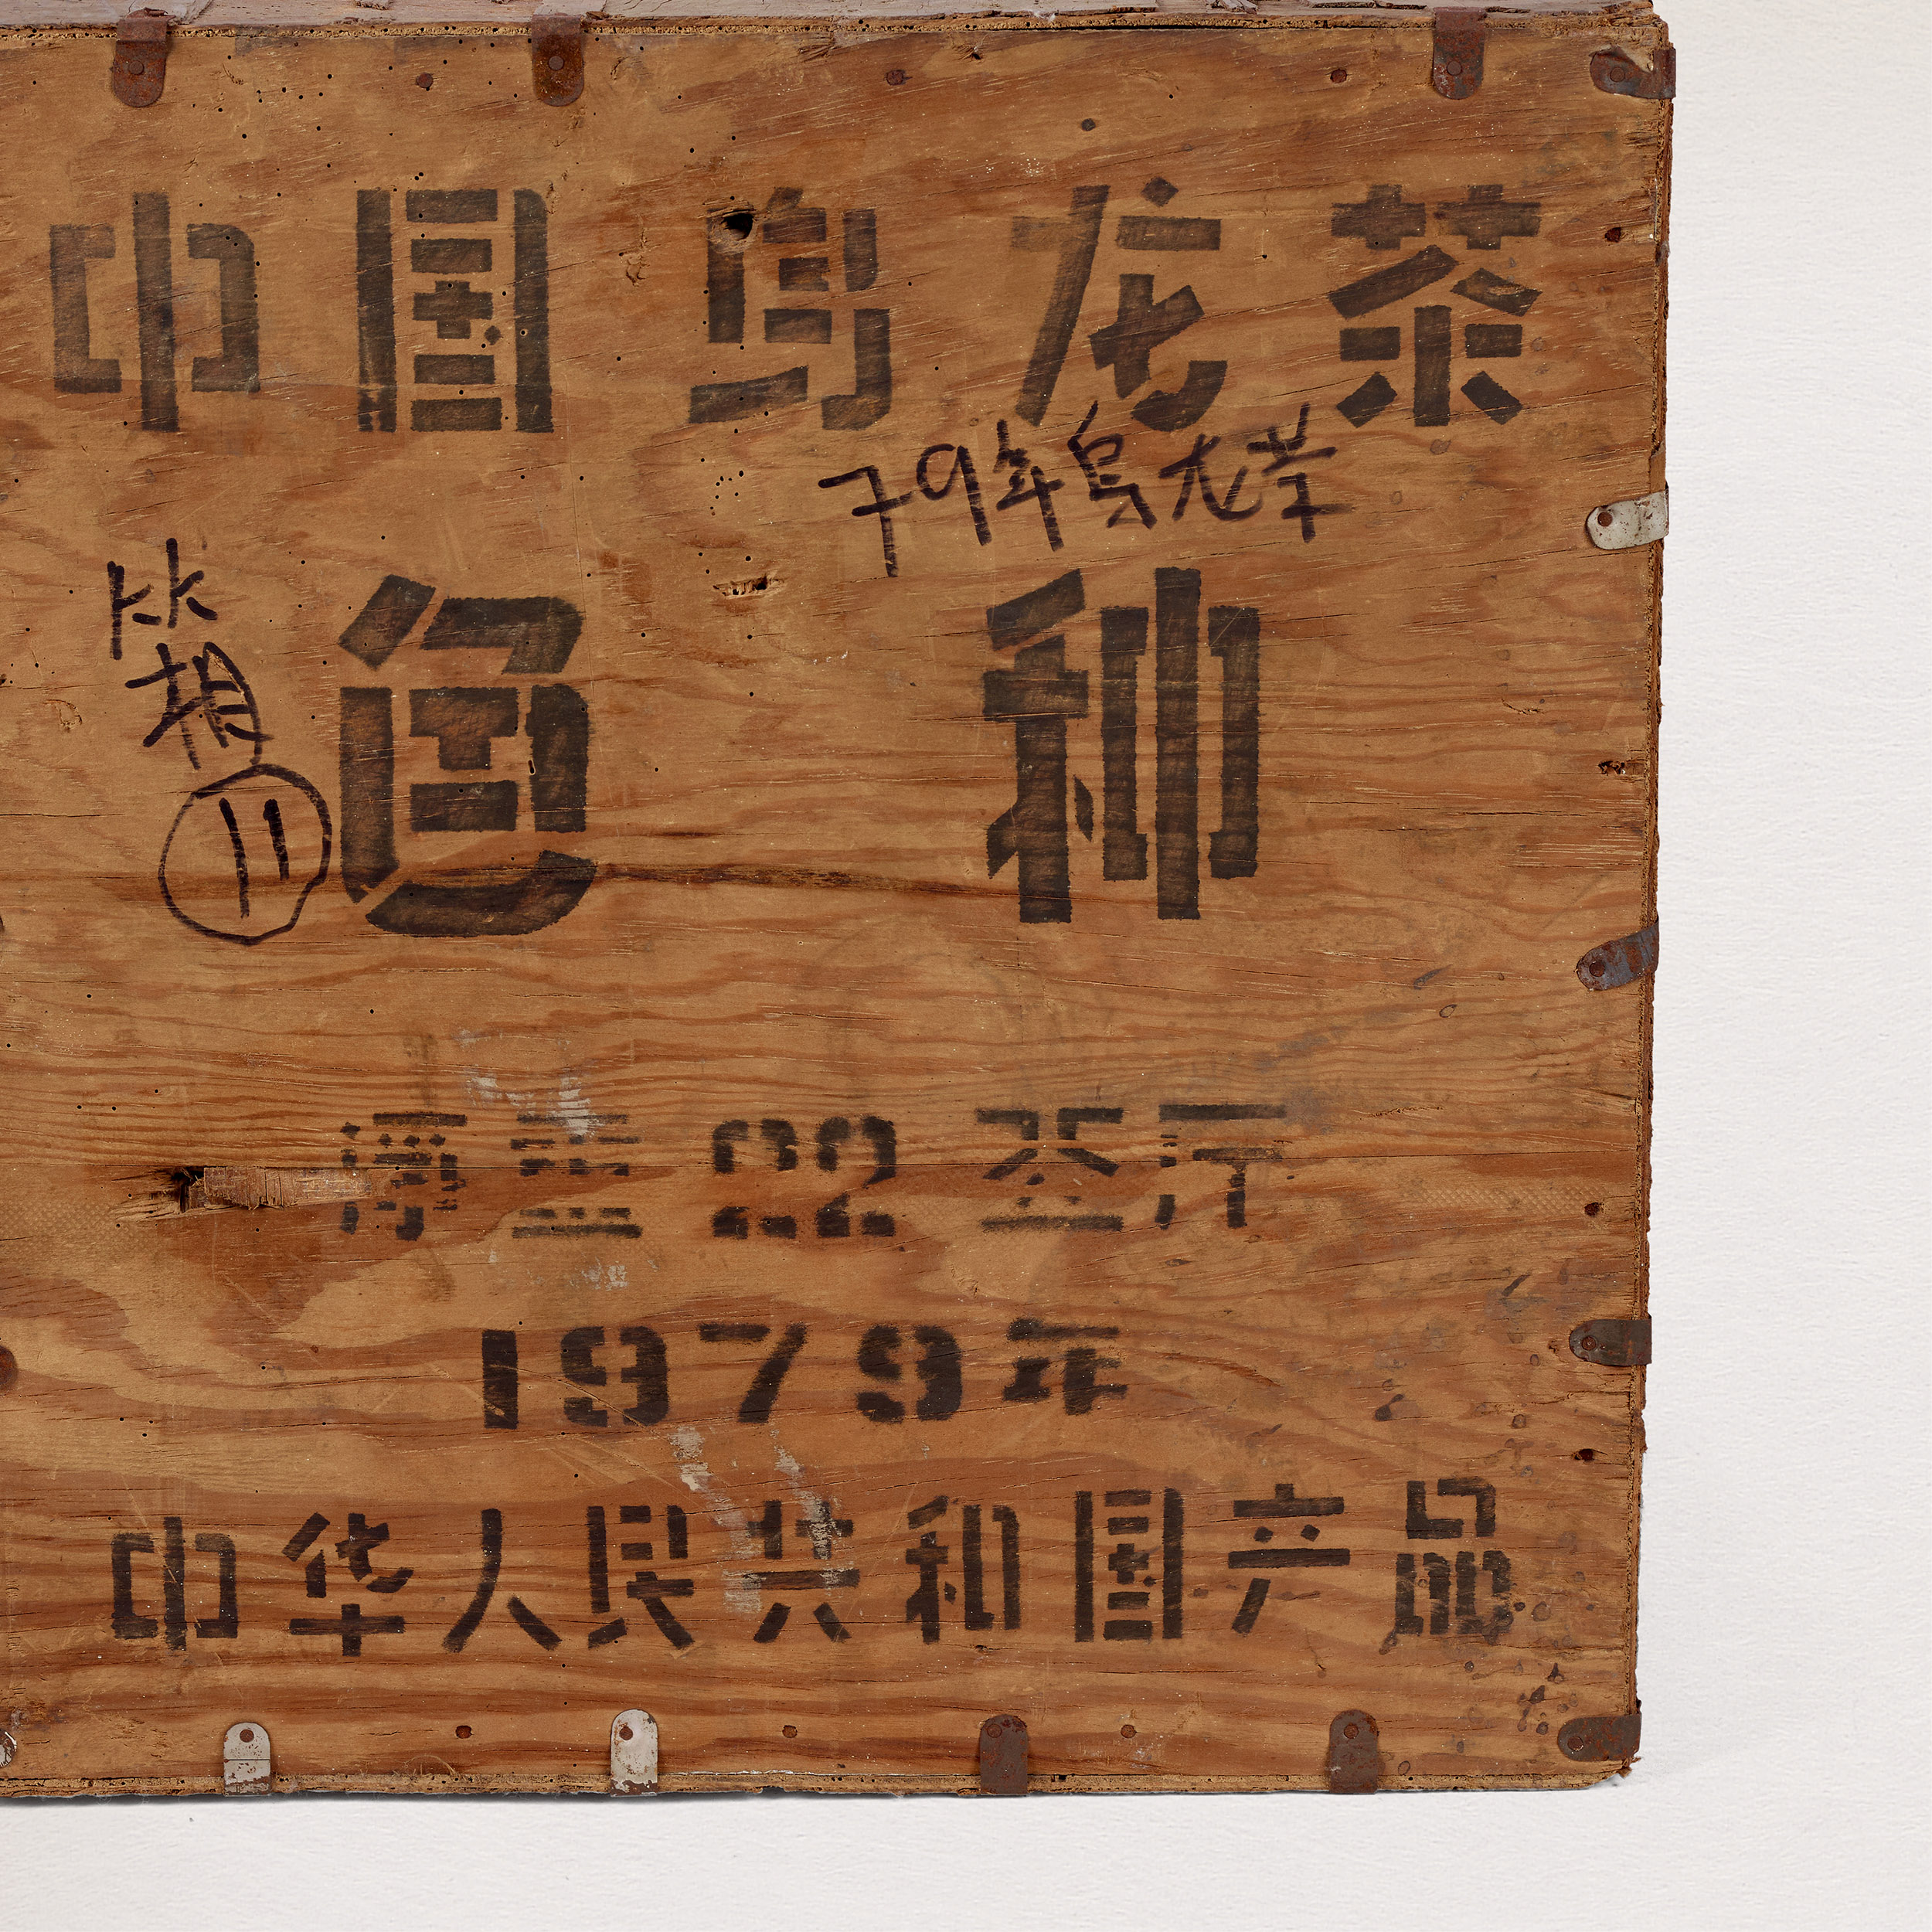 中国乌龙茶
79年烏龙茶
箱
⑪
色种
净重22公斤
1979年
中华人民共和国产品